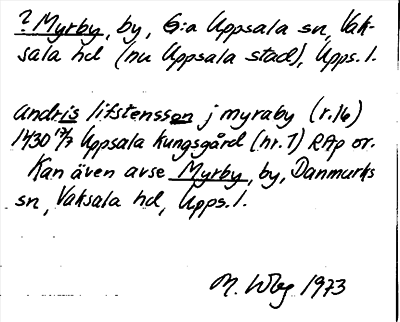 ? Myrby, by, G:a Uppsala sn, Vak-
sala hd (nu Uppsala stad), Upps. l.
andris lifstensson j myraby (r.16)
1430 17/7 Uppsala kungsgård (nr. 7) RAp or.
Kan även avse Myrby, by, Danmarks
sn, Vaksala hd, Upps. l.
M. Wbg 1973